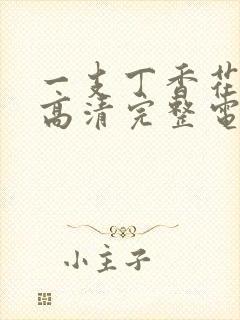 一支丁香花
高清完整电
小主子